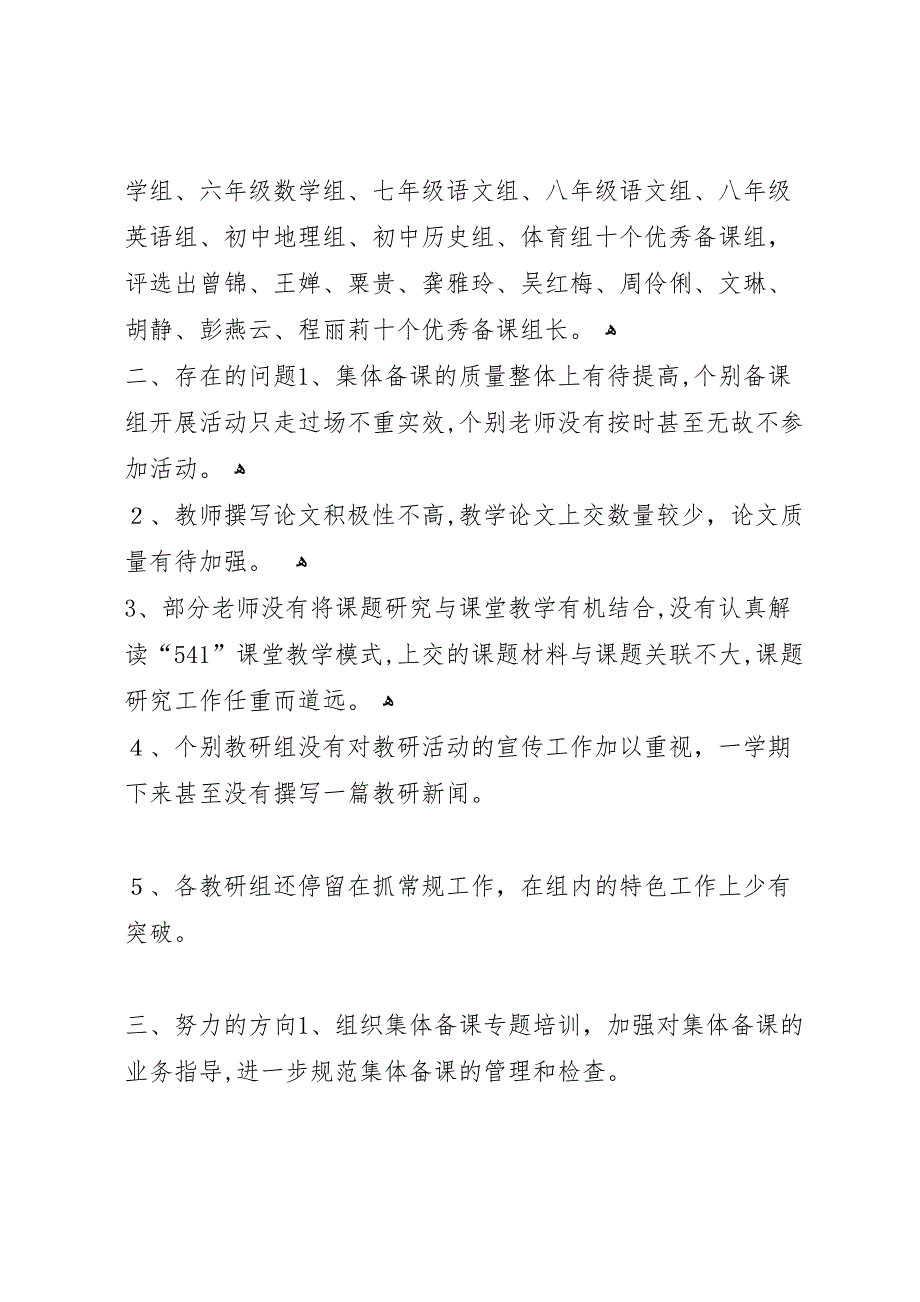 学组、六年级数学组、七年级语文组、八年级语文组、八年级
英语组、初中地理组、初中历史组、体育组十个优秀备课组，
评选出曾锦、王婵、粟贵、龚雅玲、吴红梅、周伶俐、文琳、
胡静、彭燕云、程丽莉十个优秀备课组长。 ﻫ
二、存在的问题1、集体备课的质量整体上有待提高,个别备课
组开展活动只走过场不重实效,个别老师没有按时甚至无故不参
加活动。 ﻫ
２、教师撰写论文积极性不高,教学论文上交数量较少，论文质
量有待加强。 ﻫ
3、部分老师没有将课题研究与课堂教学有机结合,没有认真解
读“541”课堂教学模式,上交的课题材料与课题关联不大,课题
研究工作任重而道远。 ﻫ
４、个别教研组没有对教研活动的宣传工作加以重视，一学期
下来甚至没有撰写一篇教研新闻。
５、各教研组还停留在抓常规工作，在组内的特色工作上少有
突破。
三、努力的方向1、组织集体备课专题培训，加强对集体备课的
业务指导,进一步规范集体备课的管理和检查。